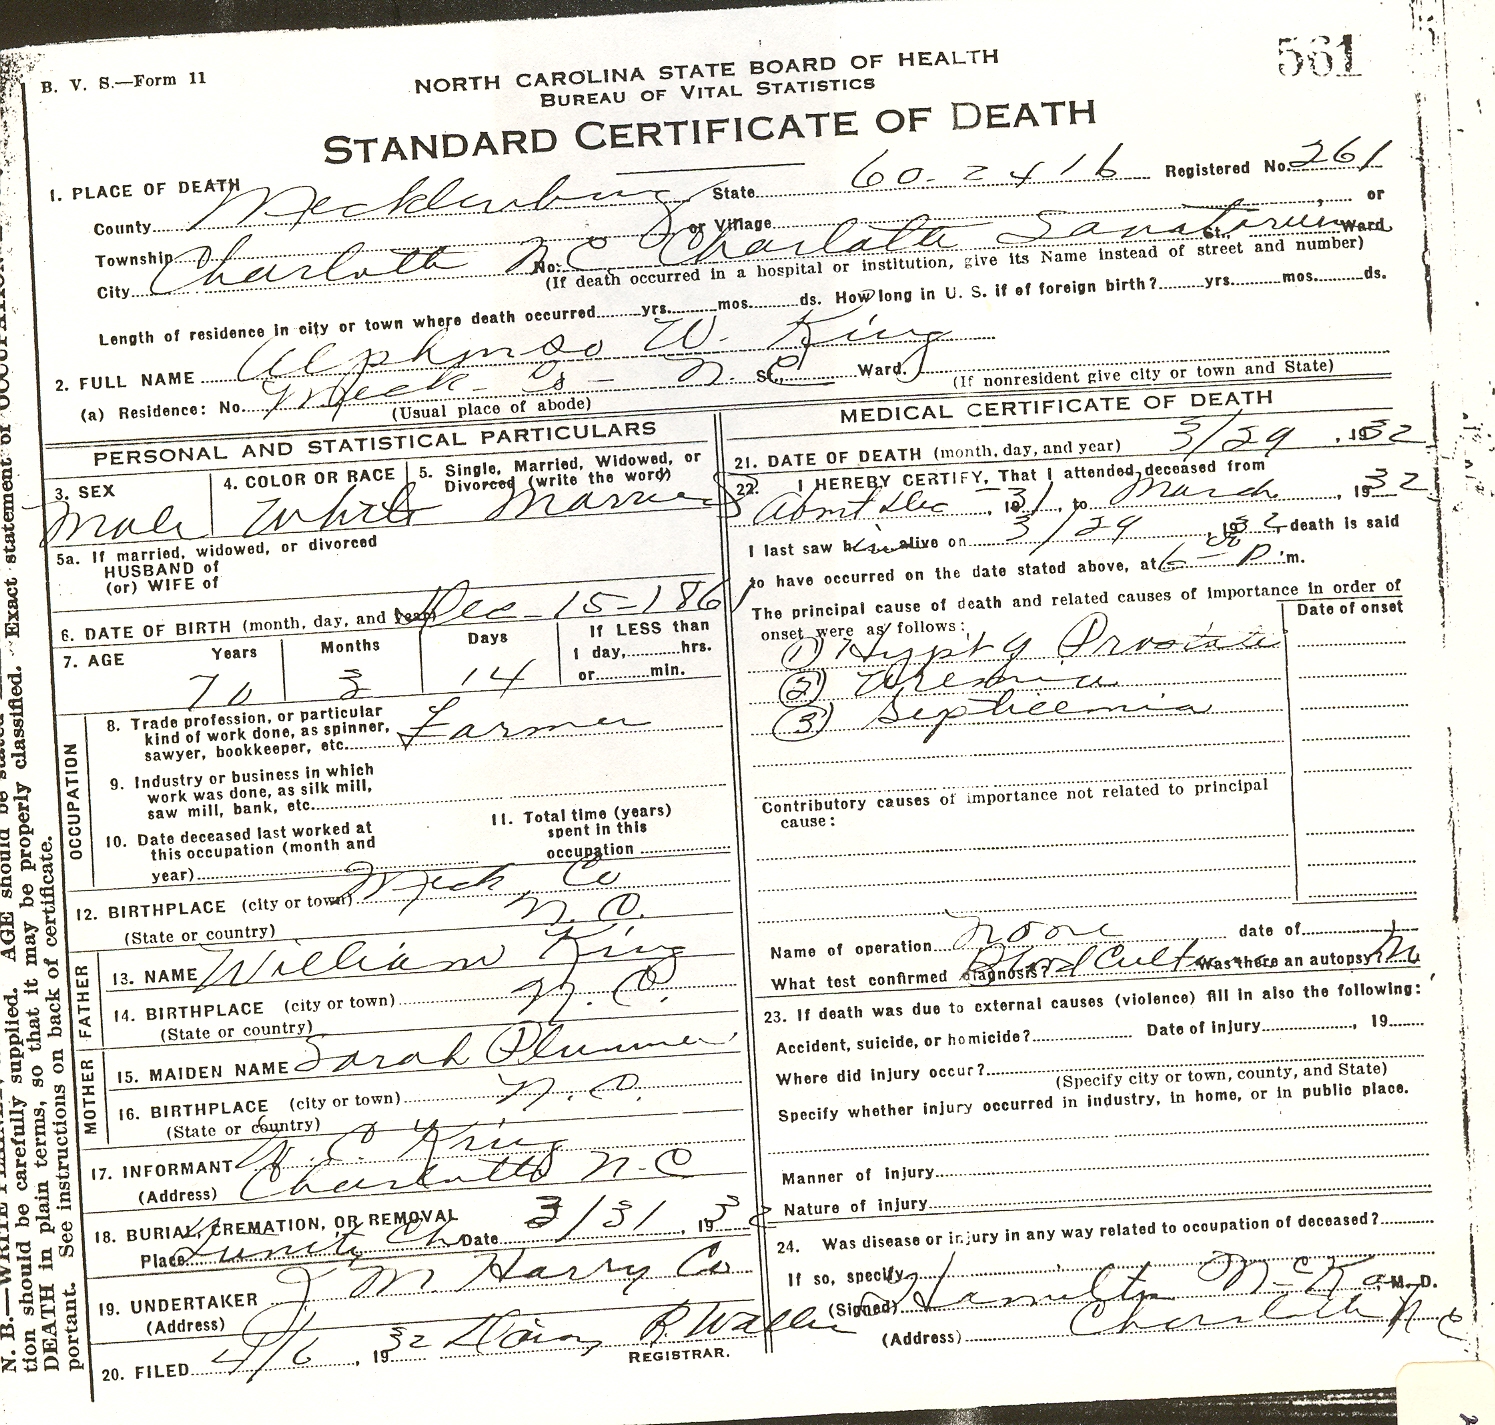 561
B. V. S.—Form 11
NORTH CAROLINA STATE BOARD OF HEALTH
BUREAU OF VITAL STATISTICS
STANDARD CERTIFICATE OF DEATH
1. PLACE OF DEATH
60-2416 Registered No. 261
County Mecklenburg State
Township or Village or
City Charlotte N C No. Charlotte Sanatorium St., Ward
(If death occurred in a hospital or institution, give its Name instead of street and number)
Length of residence in city or town where death occurred yrs. mos. ds. How long in U. S. if of foreign birth? yrs. mos. ds.
2. FULL NAME Alphonso W. King
(a) Residence: No. Meck - Co - N. C. St., Ward.
(Usual place of abode) (If nonresident give city or town and State)
PERSONAL AND STATISTICAL PARTICULARS
3. SEX Male
4. COLOR OR RACE White
5. Single, Married, Widowed, or Divorced (write the word) Married
5a. If married, widowed, or divorced
HUSBAND of
(or) WIFE of
6. DATE OF BIRTH (month, day, and year) Dec-15-1861
7. AGE Years 70 Months 3 Days 14 If LESS than 1 day, hrs. or min.
OCCUPATION
8. Trade profession, or particular
kind of work done, as spinner,
sawyer, bookkeeper, etc. Farmer
9. Industry or business in which
work was done, as silk mill,
saw mill, bank, etc.
10. Date deceased last worked at
this occupation (month and
year)
11. Total time (years)
spent in this
occupation
12. BIRTHPLACE (city or town) Meck Co
(State or country) N. C.
FATHER
13. NAME William King
14. BIRTHPLACE (city or town) N. C.
(State or country)
MOTHER
15. MAIDEN NAME Sarah Plummer
16. BIRTHPLACE (city or town) N. C.
(State or country)
17. INFORMANT C. King
(Address) Charlotte N. C
18. BURIAL, CREMATION, OR REMOVAL
Place Ch Date 3/31, 1932
19. UNDERTAKER J M Harry Co
(Address)
20. FILED 4/6, 1932
REGISTRAR.
MEDICAL CERTIFICATE OF DEATH
21. DATE OF DEATH (month, day, and year) 3/29, 1932
22. I HEREBY CERTIFY, That I attended deceased from
About Dec, 1931, to March, 1932
I last saw him alive on 3/29, 1932, death is said
to have occurred on the date stated above, at 6-00 P. m.
The principal cause of death and related causes of importance in order of
onset were as follows: Date of onset
(1) Hypt g Prostate
(2) Uremia
(3) Septicemia
Contributory causes of importance not related to principal
cause:
Name of operation none date of
What test confirmed diagnosis? Blood Culture Was there an autopsy? No
23. If death was due to external causes (violence) fill in also the following:
Accident, suicide, or homicide? Date of injury, 19
Where did injury occur?
(Specify city or town, county, and State)
Specify whether injury occurred in industry, in home, or in public place.
Manner of injury
Nature of injury
24. Was disease or injury in any way related to occupation of deceased?
If so, specify
(Signed) Hamilton McKay M. D.
(Address) Charlotte N C
tion should be carefully supplied. AGE should be stated Exact statement of OCCUPATION
DEATH in plain terms, so that it may be properly classified.
portant. See instructions on back of certificate.